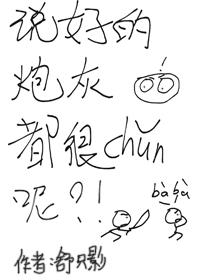 说好的
炮灰
!
都很chǔn
呢?!
bà bà
作者:舒只影